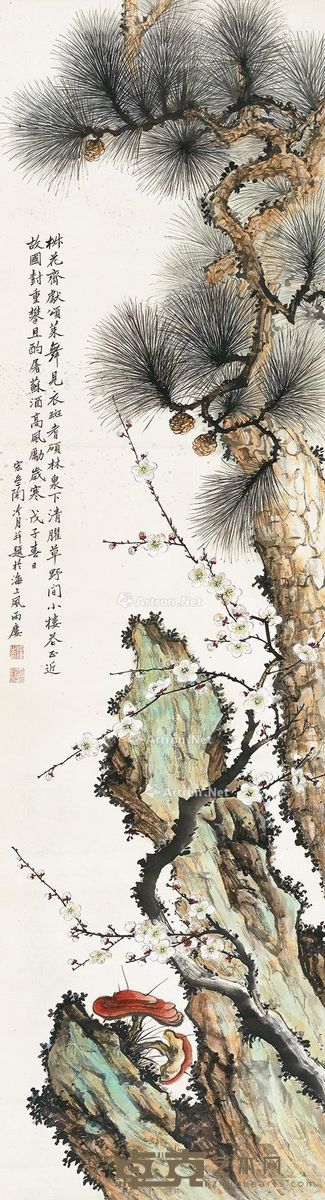 椒花齊獻頌萊舞見衣斑耆碩林泉下清臞草野間小樓春正近
故國封重攀且酌屠蘇酒高風勵歲寒戊子春日
宏斋陶冷月并題於海上風雨廬
Artron.Net
Artron.Net
Artron.Net
Artron.Net